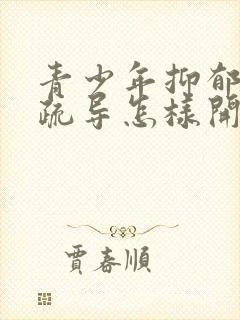 青少年抑郁
疏导怎様開
賈春順